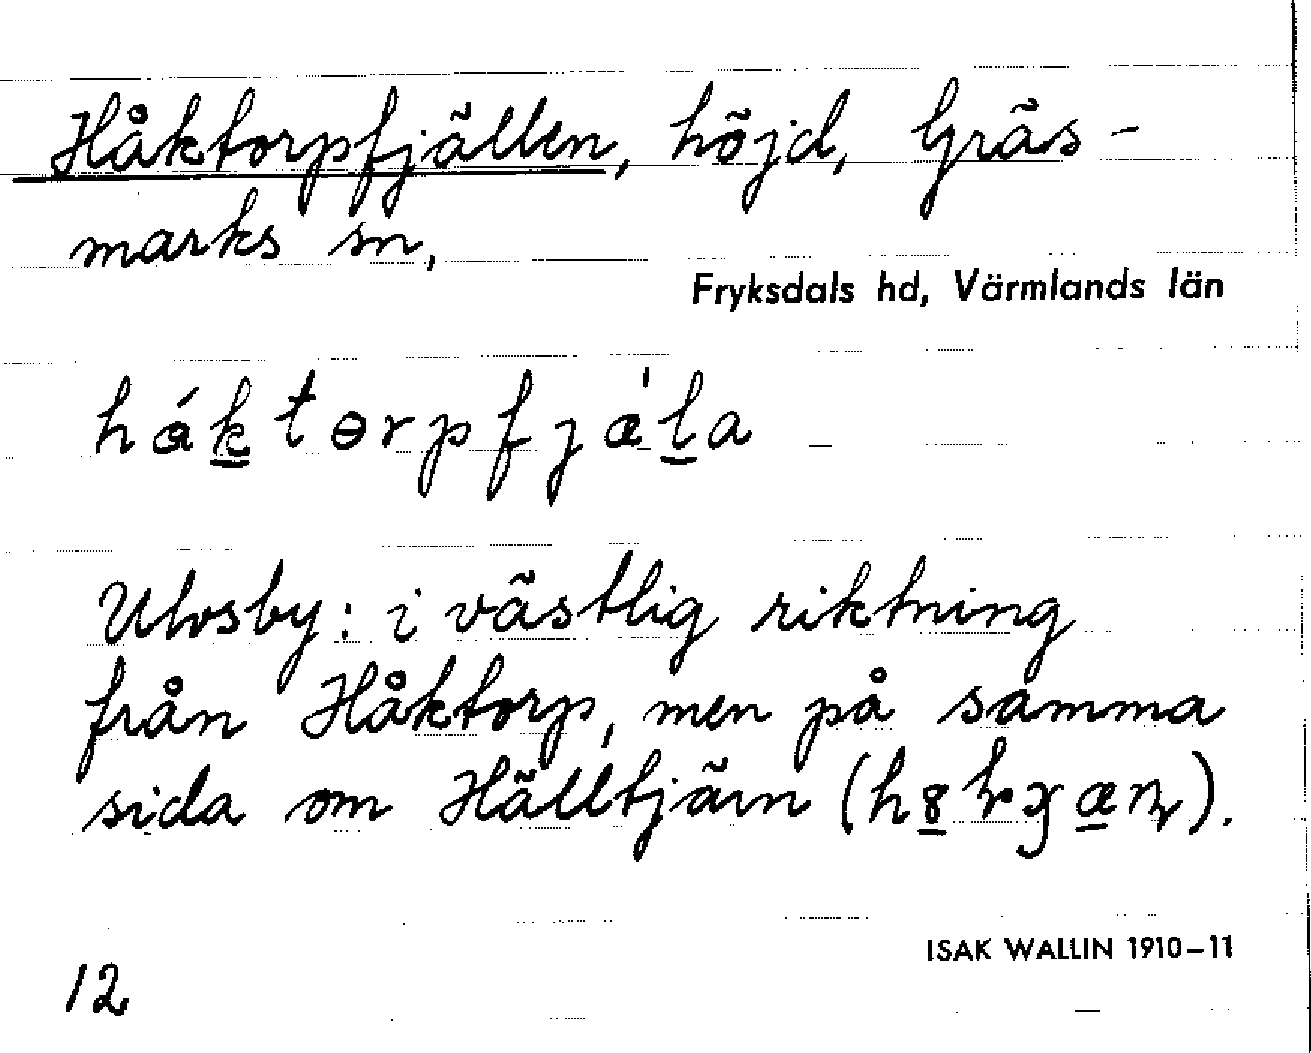 Håktorpfjällen, höjd, Gräs-
marks sn,
Fryksdals hd, Värmlands län
Ulvsby: i västlig riktning
från Håktorp, men på samma
sida om Hälltjärn
ISAK WALLIN 1910–11
12